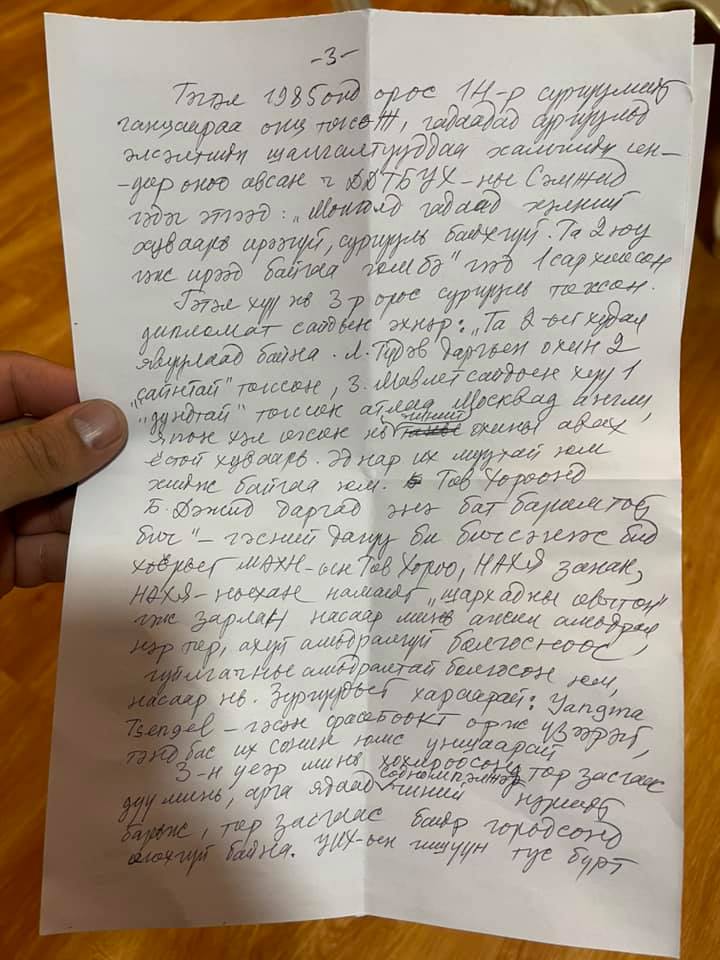 -3-
Гэтэл 1985онд орос 1Н-р сургуулийг
ганцаараа онц төгсөж, гадаадад сургуульд
элсэлтийн шалгалтуудаа хамгийн өн-
-дөр оноо авсан ч ДДТБУХ-ны Сэмжид
гэдэг этгээд: „Монголд гадаад хэлний
хуваарь ирээгүй, сургууль байхгүй. Та 2 юу
гэж ирээд байгаа юм бэ" гээд 1 сар хөөсөн
Гэтэл хүү нь 3-р орос сургууль төгсөн.
дипломат сайдын эхнэр: „Та 2-ыг худал
явуулаад байна. Л. Түдэв даргын охин 2
„сайнтай" төгссөн, З. Мавлет сайдын хүү 1
„дундтай" төгссөн атлаа Москвад англи,
япон хэл үзсэн нь чиний охины авах
ёстой хуваарь. Эд нар их муухай юм
хийж байгаа юм. Төв Хороонд
Б. Дэжид даргад энэ бат баримтыг
бич" – гэсний дагуу би бичсэнээс бид
МАХН-ын Төв Хороо, НАХЯ занаж,
НАХЯ-ныхан намайг „шархадны овьтон"
гэж зарлан насаар минь ажил амьдрал
нэр төр, ахуй амьдралгүй болгосноос,
гуйлгачны амьдралтай болгосон юм,
насаар нь. Зургуудыг хараарай: Yangma
Tsengel – гэсэн фасебоокт орж үзээрэй,
тэнд бас их сонин юмс уншаарай
З-н үеэр минь хохироосон төр засгаас
дүү минь, арга ядаад Содномпэлжээ чиний нэрийг
барьж, төр засгаас байр городсонд
өгөхгүй байна. УИХ-ын гишүүн тус бүрт